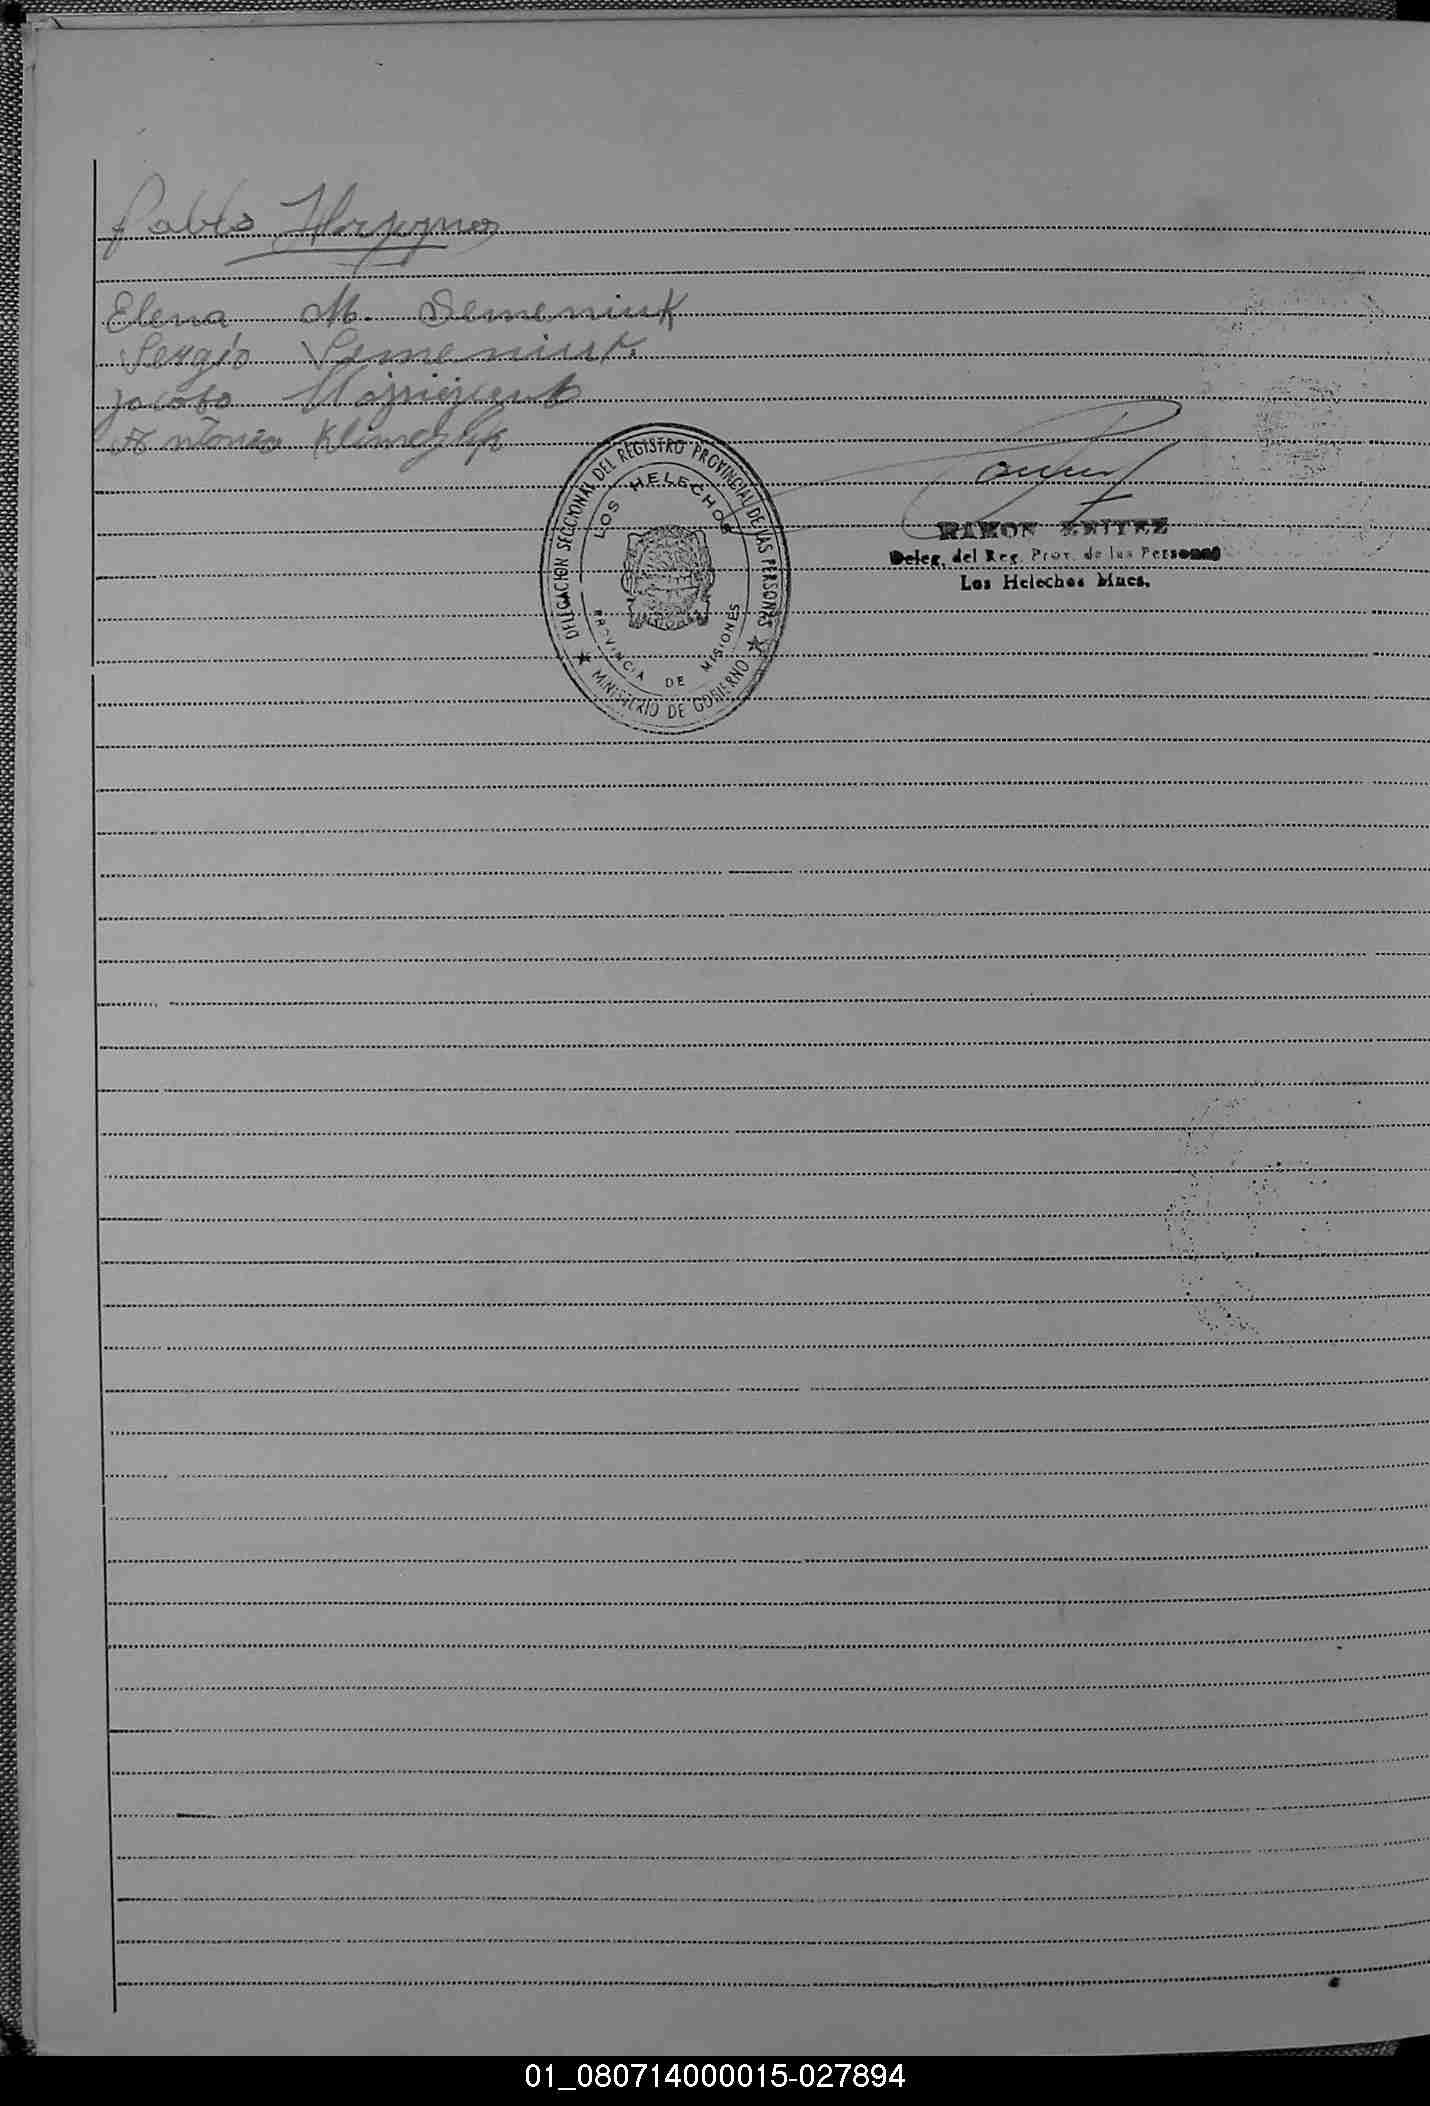 Pablo
Elena M. Semeniuk
Sergio Semeniuk
Jacobo
Antonio Klimczuk
DELEGACION SECCIONAL DEL REGISTRO PROVINCIAL DE LAS PERSONAS
LOS HELECHOS
PROVINCIA DE MISIONES
★ MINISTERIO DE GOBIERNO ★
RAMON BENITEZ
Deleg. del Reg. Prov. de las Personas
Los Helechos Mnes.
01_080714000015-027894